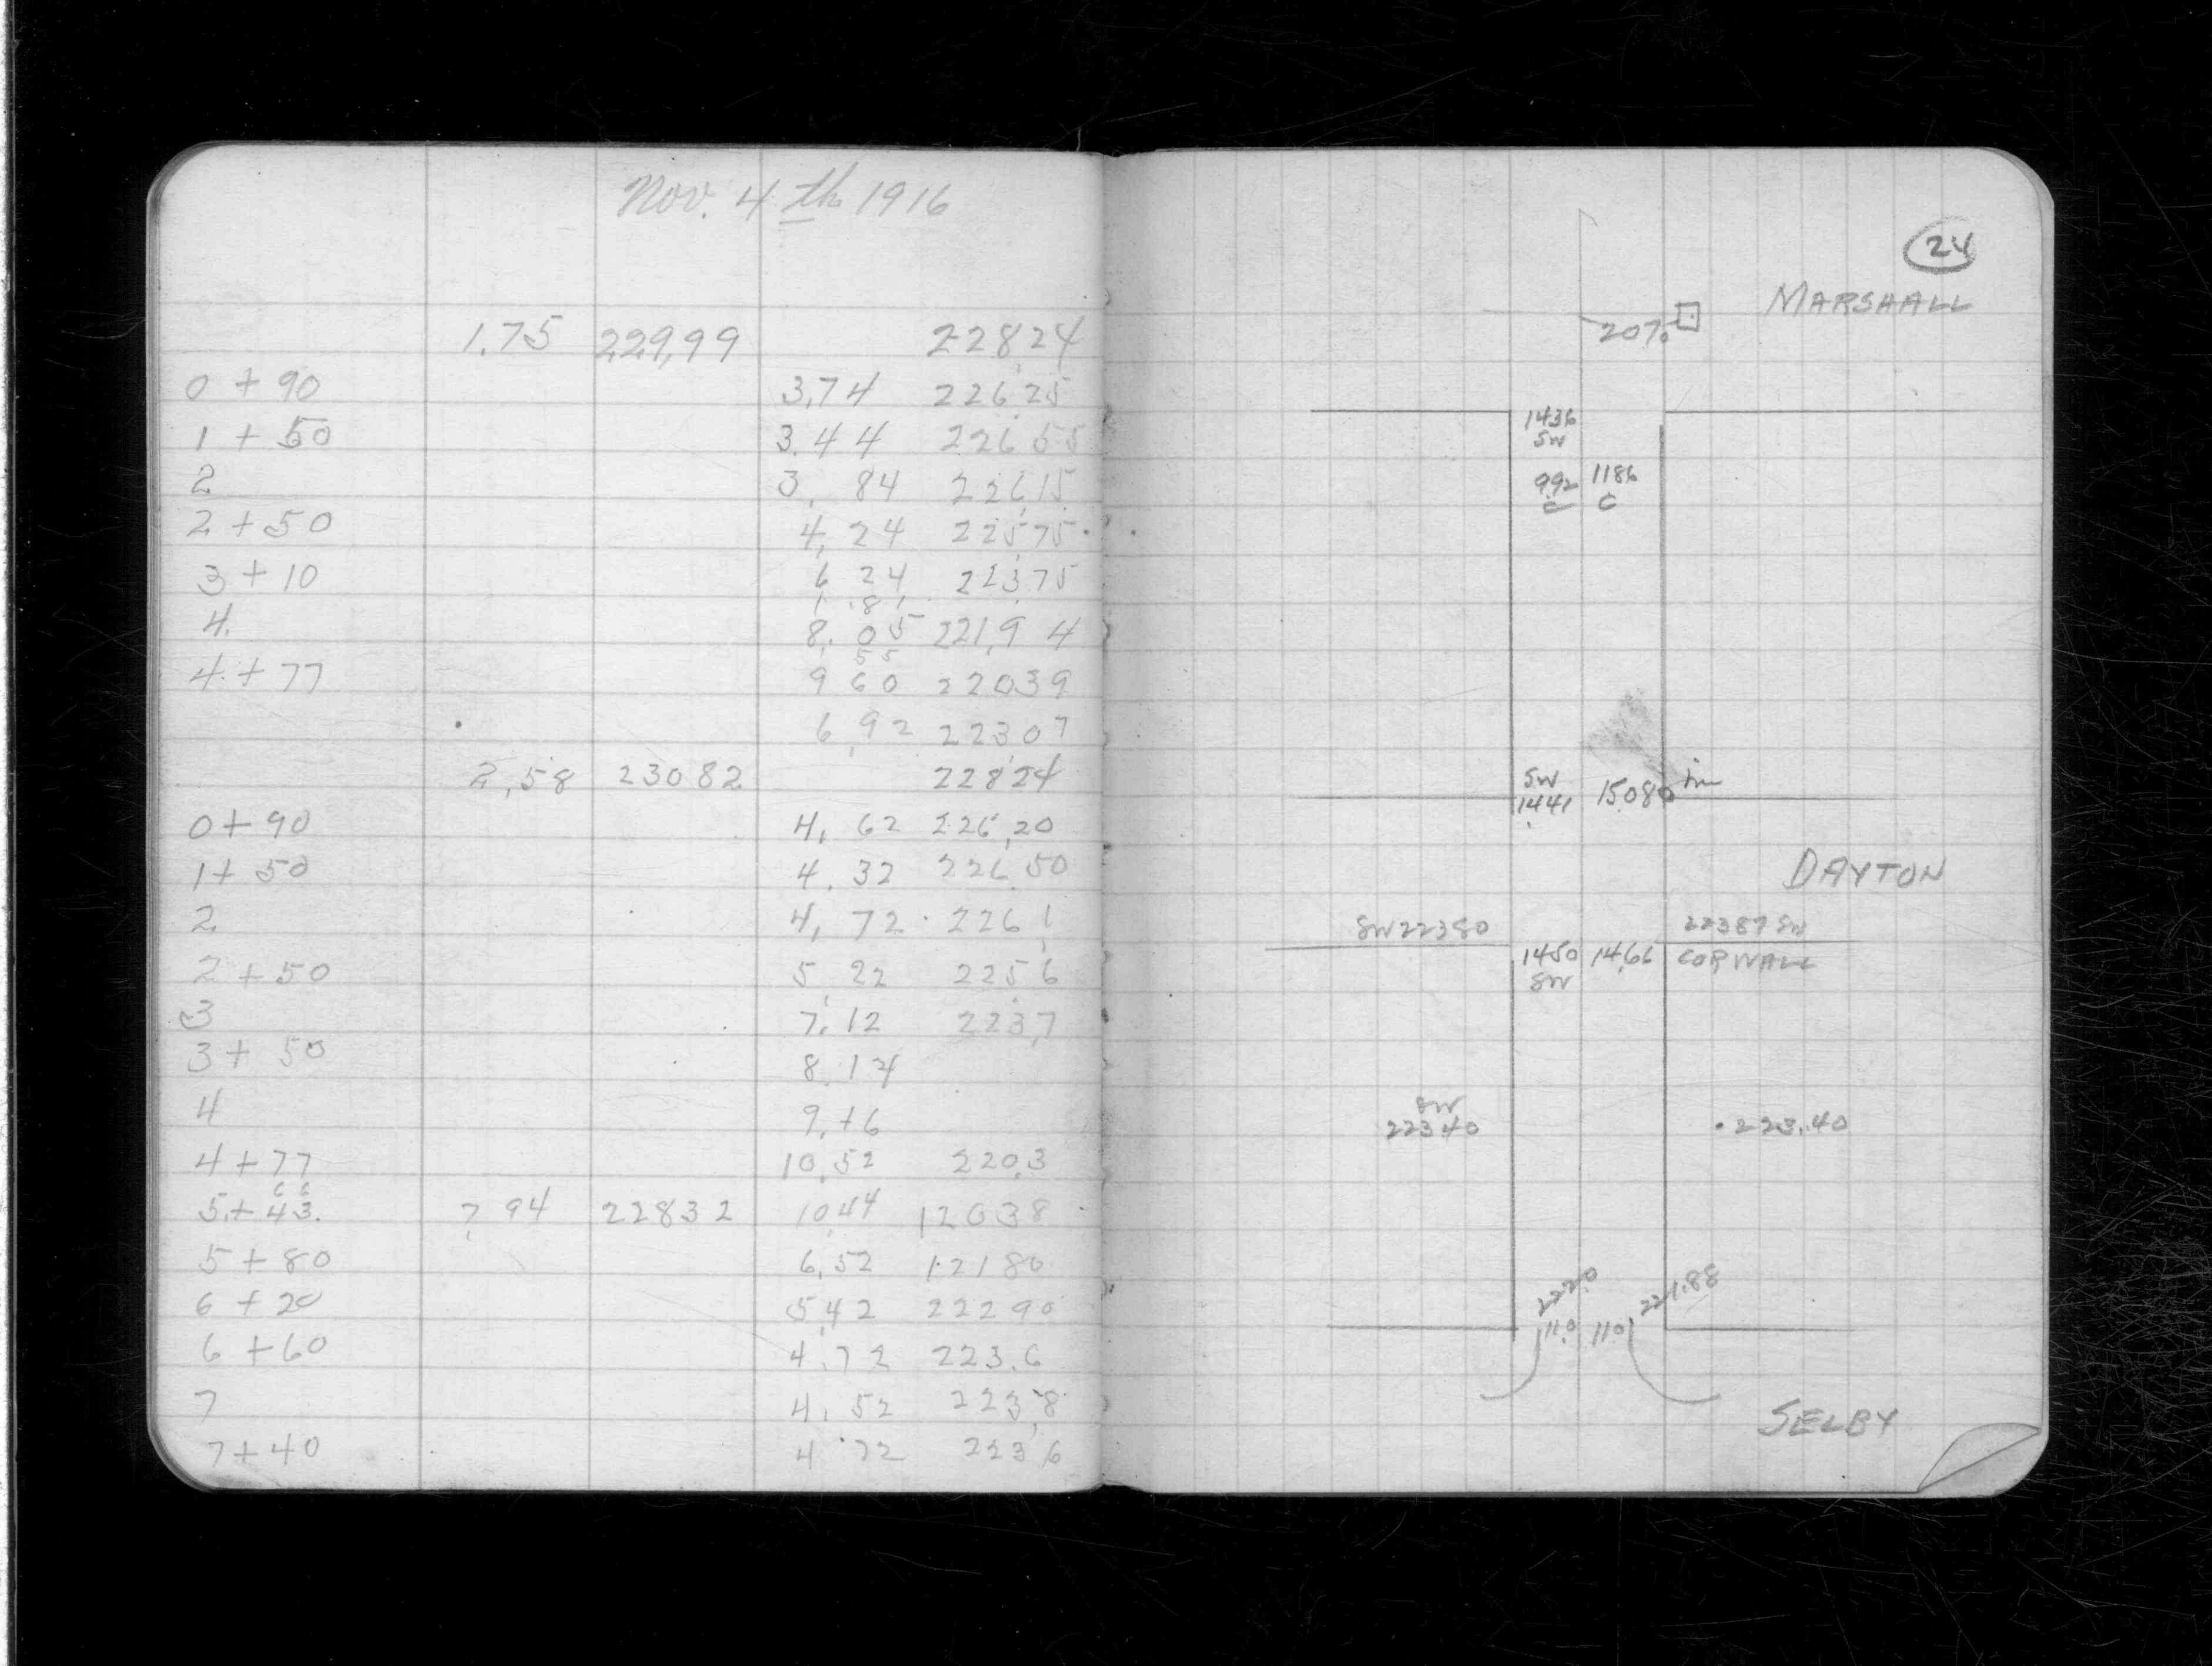 Nov. 4th 1916
1.75 229.99 228.24
0 + 90 3.74 226.25
1 + 50 3.44 226.55
2 3.84 226.15
2 + 50 4.24 225.75
3 + 10 6 24 223.75
1.81
4. 8.05 221.94
55
4 + 77 9 60 22039
6.92 22307
2.58 23082 22824
0 + 90 4.62 226.20
1 + 50 4.32 226.50
2 4.72 226.1
2 + 50 5.22 225.6
3 7.12 223.7
3 + 50 8.14
4 9.+6
4 + 77 10.52 220.3
66
5 + 43. 7.94 22832 10.44 12038
5 + 80 6.52 12180
6 + 20 5.42 22290
6 + 60 4.72 223.6
7 4.52 223.8
7 + 40 4.72 223.6
24
MARSHALL
207.
1436
SW
9.92 1186
C C
SW
14.41 15.08
DAYTON
SW 22380 22387 SW
1450 14.66 CORWALL
SW
SW
223.40 223.40
222.0 221.88
11.0 11.0
SELBY